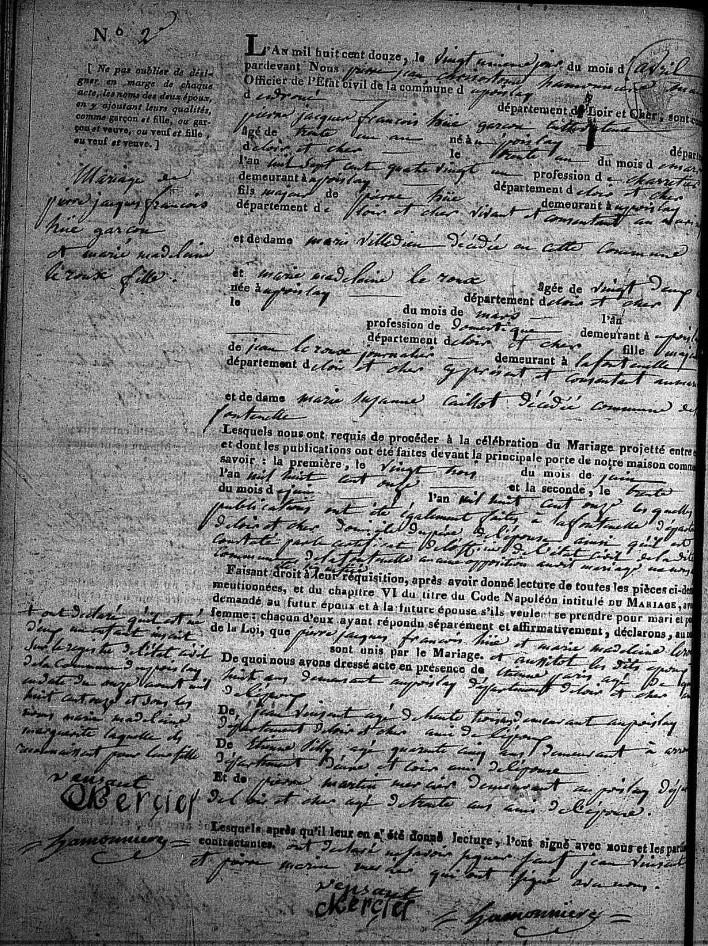 N° 2
[ Ne pas oublier de dési-
gner en marge de chaque
acte, les noms des deux époux,
en y ajoutant leurs qualités,
comme garçon et fille, ou gar-
çon et veuve, ou veuf et fille
ou veuf et veuve. ]
Mariage de
pierre jacques françois
hüe garçon
et marie madelaine
le roux fille.
L'AN mil huit cent douze, le vingt unieme jour du mois d avril
pardevant Nous pierre jean hamonniere
Officier de l'Etat civil de la commune d upoislay
département de Loir et Cher, sont
pierre jacques françois hüe garçon
âgé de trente un an né à upoislay
d cloir et cher le trente un du mois d mars
l'an mil sept cent quatre vingt un profession de charretier
demeurant à upoislay département d cloir et cher
fils majeur de pierre hüe demeurant à upoislay
département de loir et cher vivant et consentant au
et de dame marie villedieu décédée en cette commune
et marie madelaine le roux âgée de vingt
née à upoislay département d cloir et cher
le du mois de mars l'an
profession de domestique demeurant à
département d cloir et cher fille
de jean le roux journalier demeurant à lafontenelle
département d cloir et cher y présent et consentant
et de dame marie suzanne caillot décédée commune de
fontenelle
Lesquels nous ont requis de procéder à la célébration du Mariage projetté entre
et dont les publications ont été faites devant la principale porte de notre maison
savoir : la première, le vingt trois du mois de juin
l'an mil huit cent onze et la seconde, le trente
du mois d juin l'an mil huit cent onze lesquelles
publications ont été également faites à lafontenelle
d cloir et cher domicile du père de l'épouse ainsi qu'il est
constaté par le certificat de l'officier de l'état civil de la dite
commune de lafontenelle aucune opposition audit mariage
Faisant droit à leur réquisition, après avoir donné lecture de toutes les pièces ci-dessus
mentionnées, et du chapitre VI du titre du Code Napoléon intitulé DU MARIAGE,
demandé au futur époux et à la future épouse s'ils veulent se prendre pour mari et
femme : chacun d'eux ayant répondu séparément et affirmativement, déclarons, au
de la Loi, que pierre jacques françois hüe et marie madelaine
sont unis par le Mariage. et aussitôt les dits époux
+ ont declaré qu'il est né
d'eux un enfant inscrit
sur le registre de l'état civil
de la Commune d upoislay
en date du onze avril mil
huit cent onze et sous les
noms marie madelaine
marguerite laquelle ils
reconnaissent pour leur fille
vensant
CMercier
hamonniere
De quoi nous avons dressé acte en présence de étienne paris agé de
huit ans demeurant aupoislay département d cloir et cher
de l'époux
De jean vinsant agé de trente trois ans demeurant aupoislay
département d cloir et cher ami de l'époux
De Etienne agé quarante cinq ans demeurant à
département deure et loir ami de l'épouse
Et de pierre martin mercier demeurant aupoislay
de loir et cher agé de trente ans ami de l'épouse.
Lesquels après qu'il leur en a été donné lecture, l'ont signé avec nous et les parties
contractantes. ont déclaré ne savoir signer fors jean vinsant
et pierre martin mercier qui ont signé avec nous.
vensant
CMercier
hamonniere